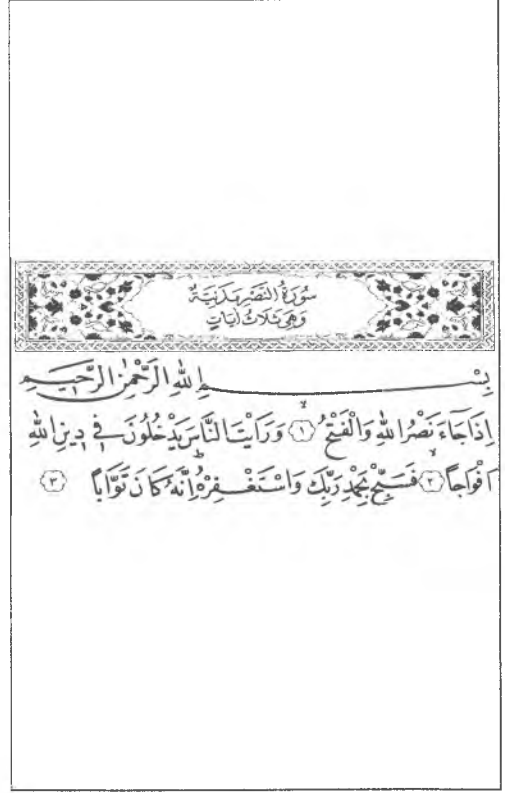 سُورَةُ النَّصْرِ مَدَنِيَّةٌ
وَهِيَ ثَلَاثُ اٰيَاتٍ
بِسْمِ اللّٰهِ الرَّحْمٰنِ الرَّحٖيمِ
اِذَا جَٓاءَ نَصْرُ اللّٰهِ وَالْفَتْحُۙ ﴿١﴾ وَرَاَيْتَ النَّاسَ يَدْخُلُونَ فٖي دٖينِ اللّٰهِ
اَفْوَاجاًۙ ﴿٢﴾ فَسَبِّحْ بِحَمْدِ رَبِّكَ وَاسْتَغْفِرْهُؕ اِنَّهُ كَانَ تَوَّاباً ﴿٣﴾